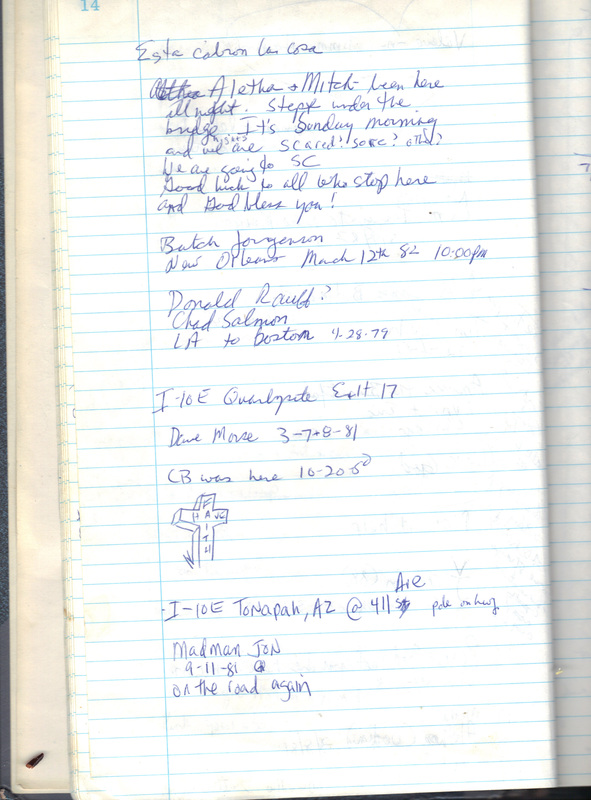 14
Esta cabron las cosa
Aletha & Mitch - been here
all night. Slept under the
bridge. It's Sunday morning
night?
and we are scared? sore? other?
We are going to SC
Good luck to all who stop here
and God bless you!
Butch Jorgenson
New Orleans March 12th 82 10:00pm
Donald Rauff?
Chad Salmon
LA to Boston 9-28-79
I-10E Quartzsite Exit 17
Dave Morse 3-7+8-81
CB was here 10-20-80
F
H A VE
I
T
H
Ave
-I-10E Tonapah, AZ @ 411 pole on hwy
Madman Jon
9-11-81
on the road again